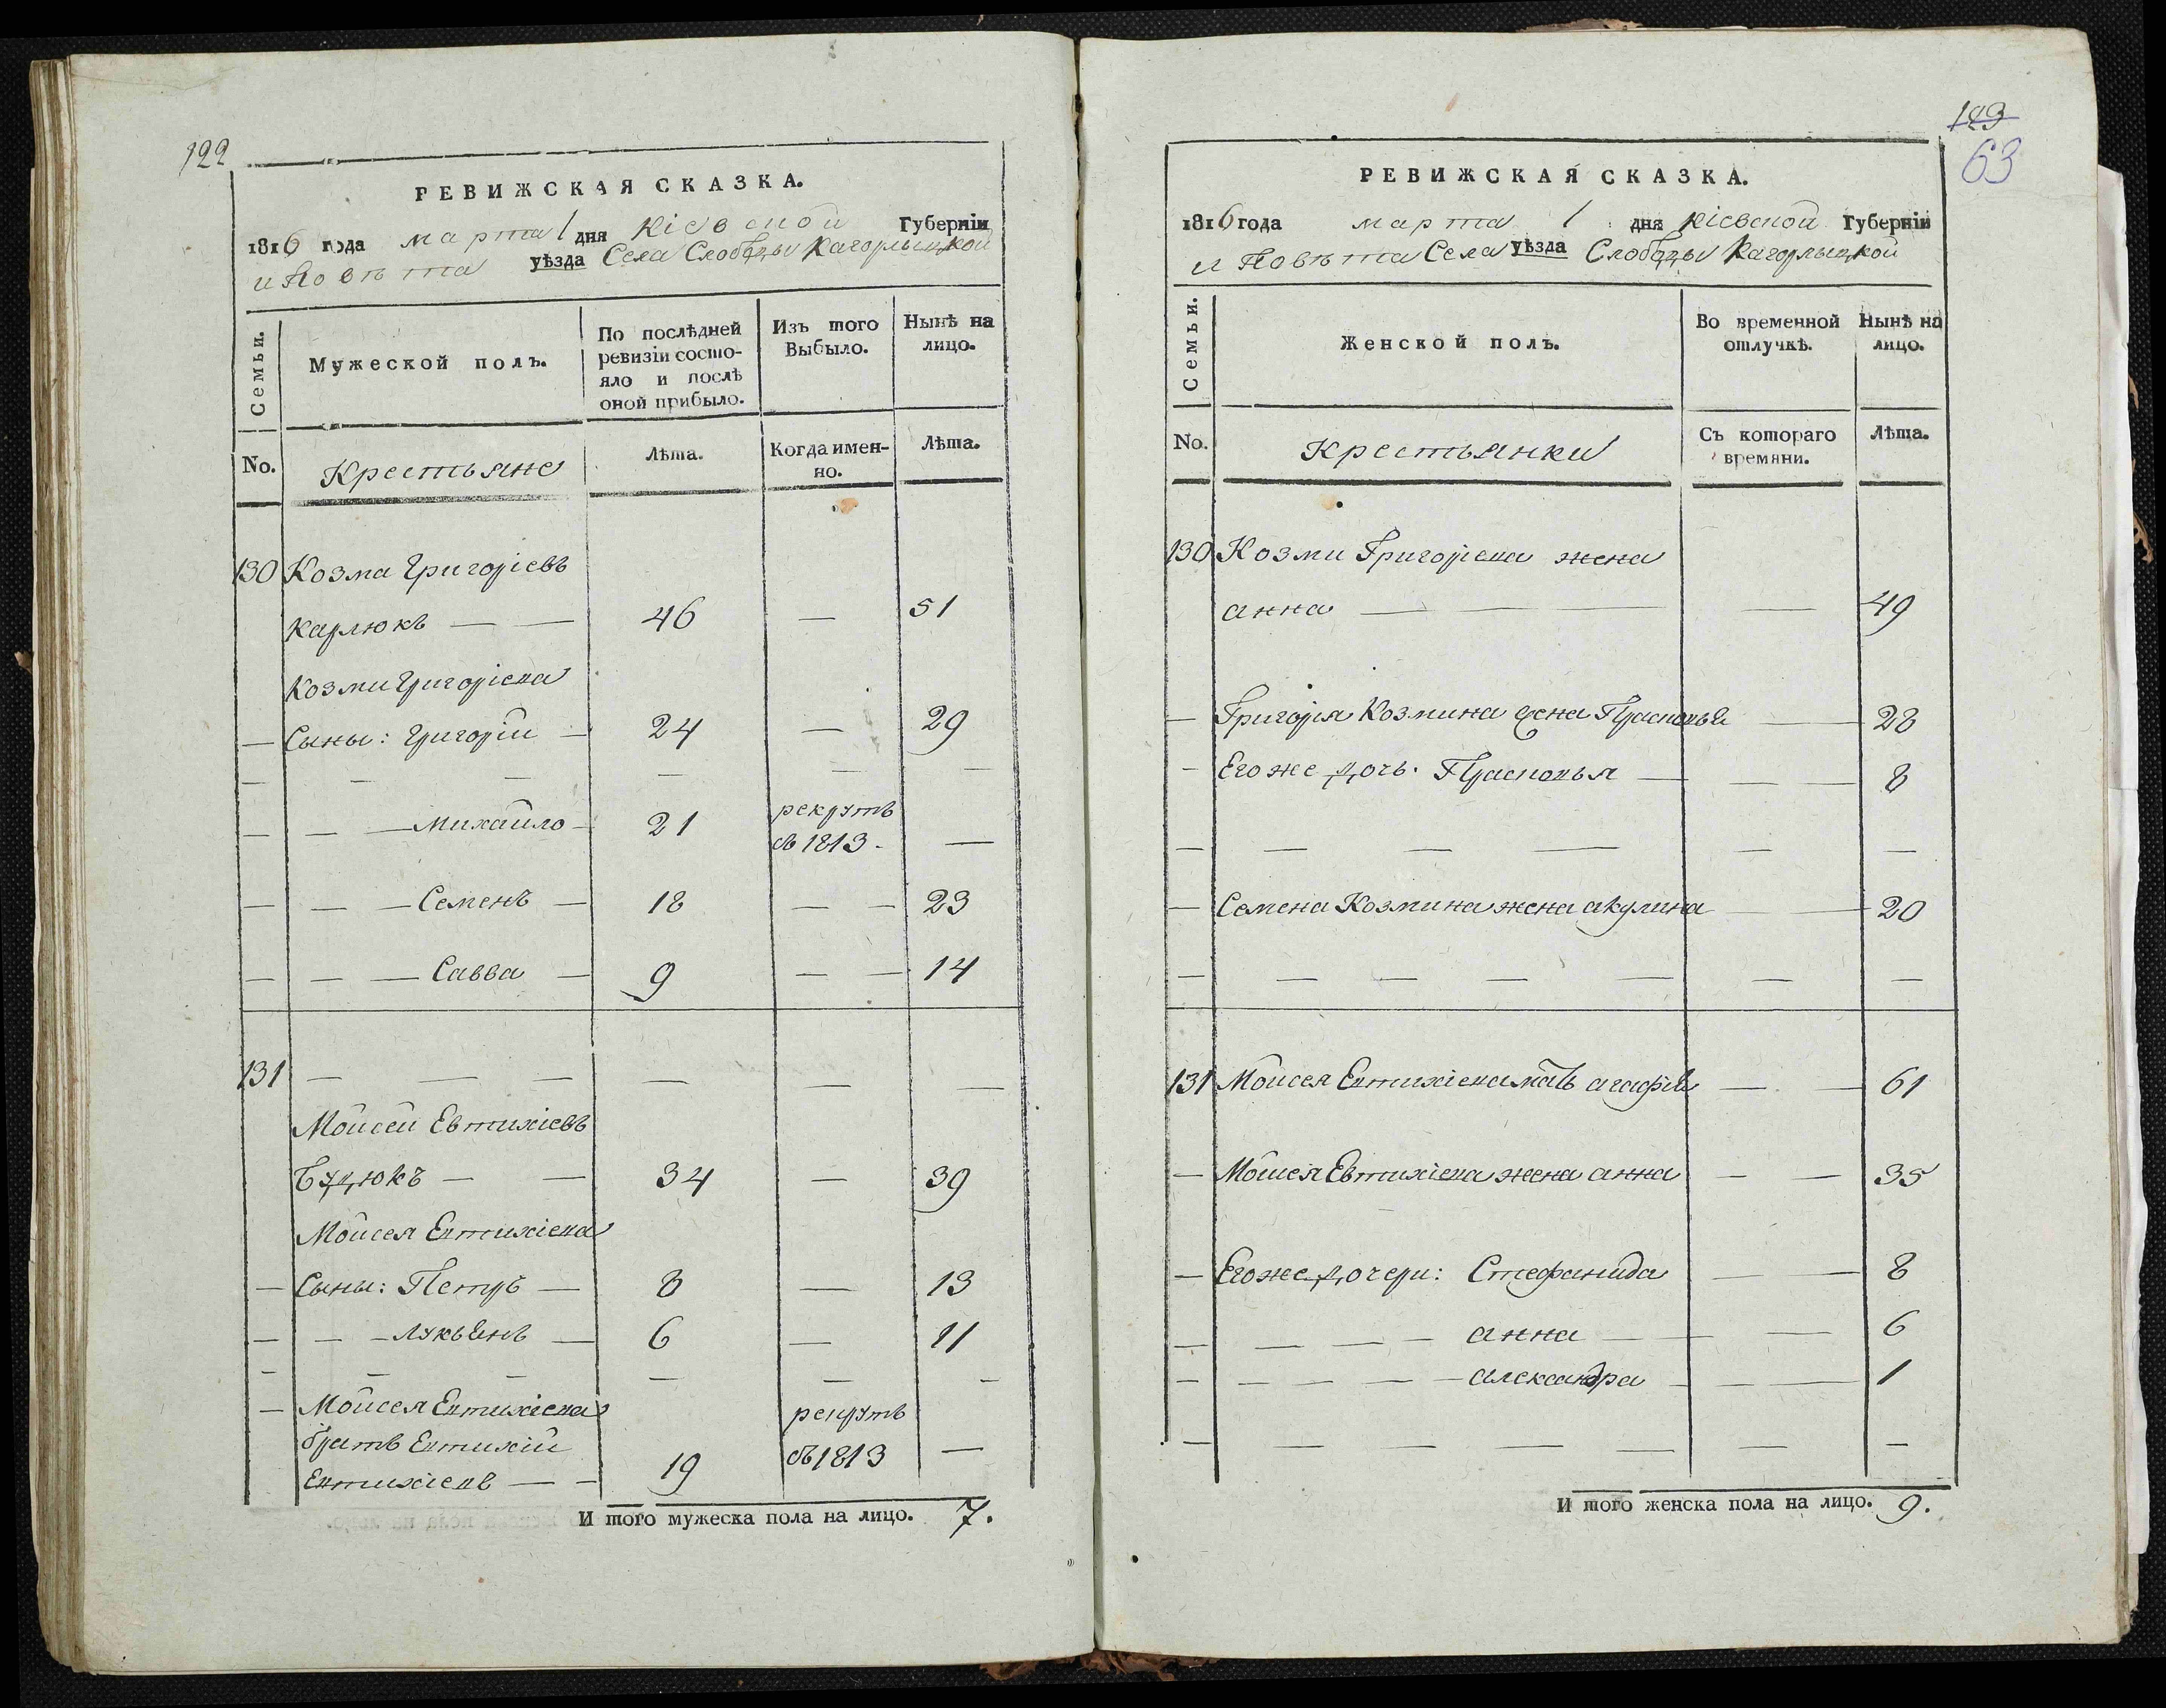 122
РЕВИЖСКАЯ СКАЗКА.
1816 года марта 1 дня Кіевской Губерніи
и Повѣта уѣзда Села Слободы Кагорлыцкой
Семьи.
Мужеской полъ.
По послѣдней ревизіи состо-
яло и послѣ оной прибыло.
Изъ того Выбыло.
Нынѣ на лицо.
No.
Крестьяне
Лѣта.
Когда имен-
но.
Лѣта.
130 Козма Григоріевъ
Карлюкъ — — 46 — 51
Козми Григоріева
— Сыны: Григорій — 24 — 29
— — — — — —
— — — Михайло — 21 рекрутъ
въ 1813. —
— — — Семенъ — 18 — — 23
— — — Савва — 9 — — 14
131 — — — — — —
Мойсей Евтихіевъ
Будюкъ — — 34 — 39
Мойсея Евтихіева
— Сыны: Петръ — 8 — 13
— — — Лукьянъ — 6 — 11
— — — — — —
— Мойсея Евтихіева рекрутъ
братъ Евтихій
Евтихіевъ — — 19 въ 1813 —
И того мужеска пола на лицо. 7.
123
63
РЕВИЖСКАЯ СКАЗКА.
1816 года марта 1 дня Кіевской Губерніи
и Повѣта Села уѣзда Слободы Кагорлыцкой
Семьи.
Женской полъ.
Во временной отлучкѣ.
Нынѣ на лицо.
No.
Крестьянки
Съ котораго времяни.
Лѣта.
130 Козми Григоріева жена
анна — — — — 49
— Григорія Козмина жена Прасковья — — 28
— Егоже дочь. Прасковья — — — 8
— — — — — —
— Семена Козмина жена акулина — — 20
— — — — — — —
131 Мойсея Евтихіева мать агафія — — 61
— Мойсея Евтихіева жена анна — — 35
— Егоже дочери: Стефанида — — 8
— — — — анна — — — 6
— — — — — александра — — 1
— — — — — — —
И того женска пола на лицо. 9.